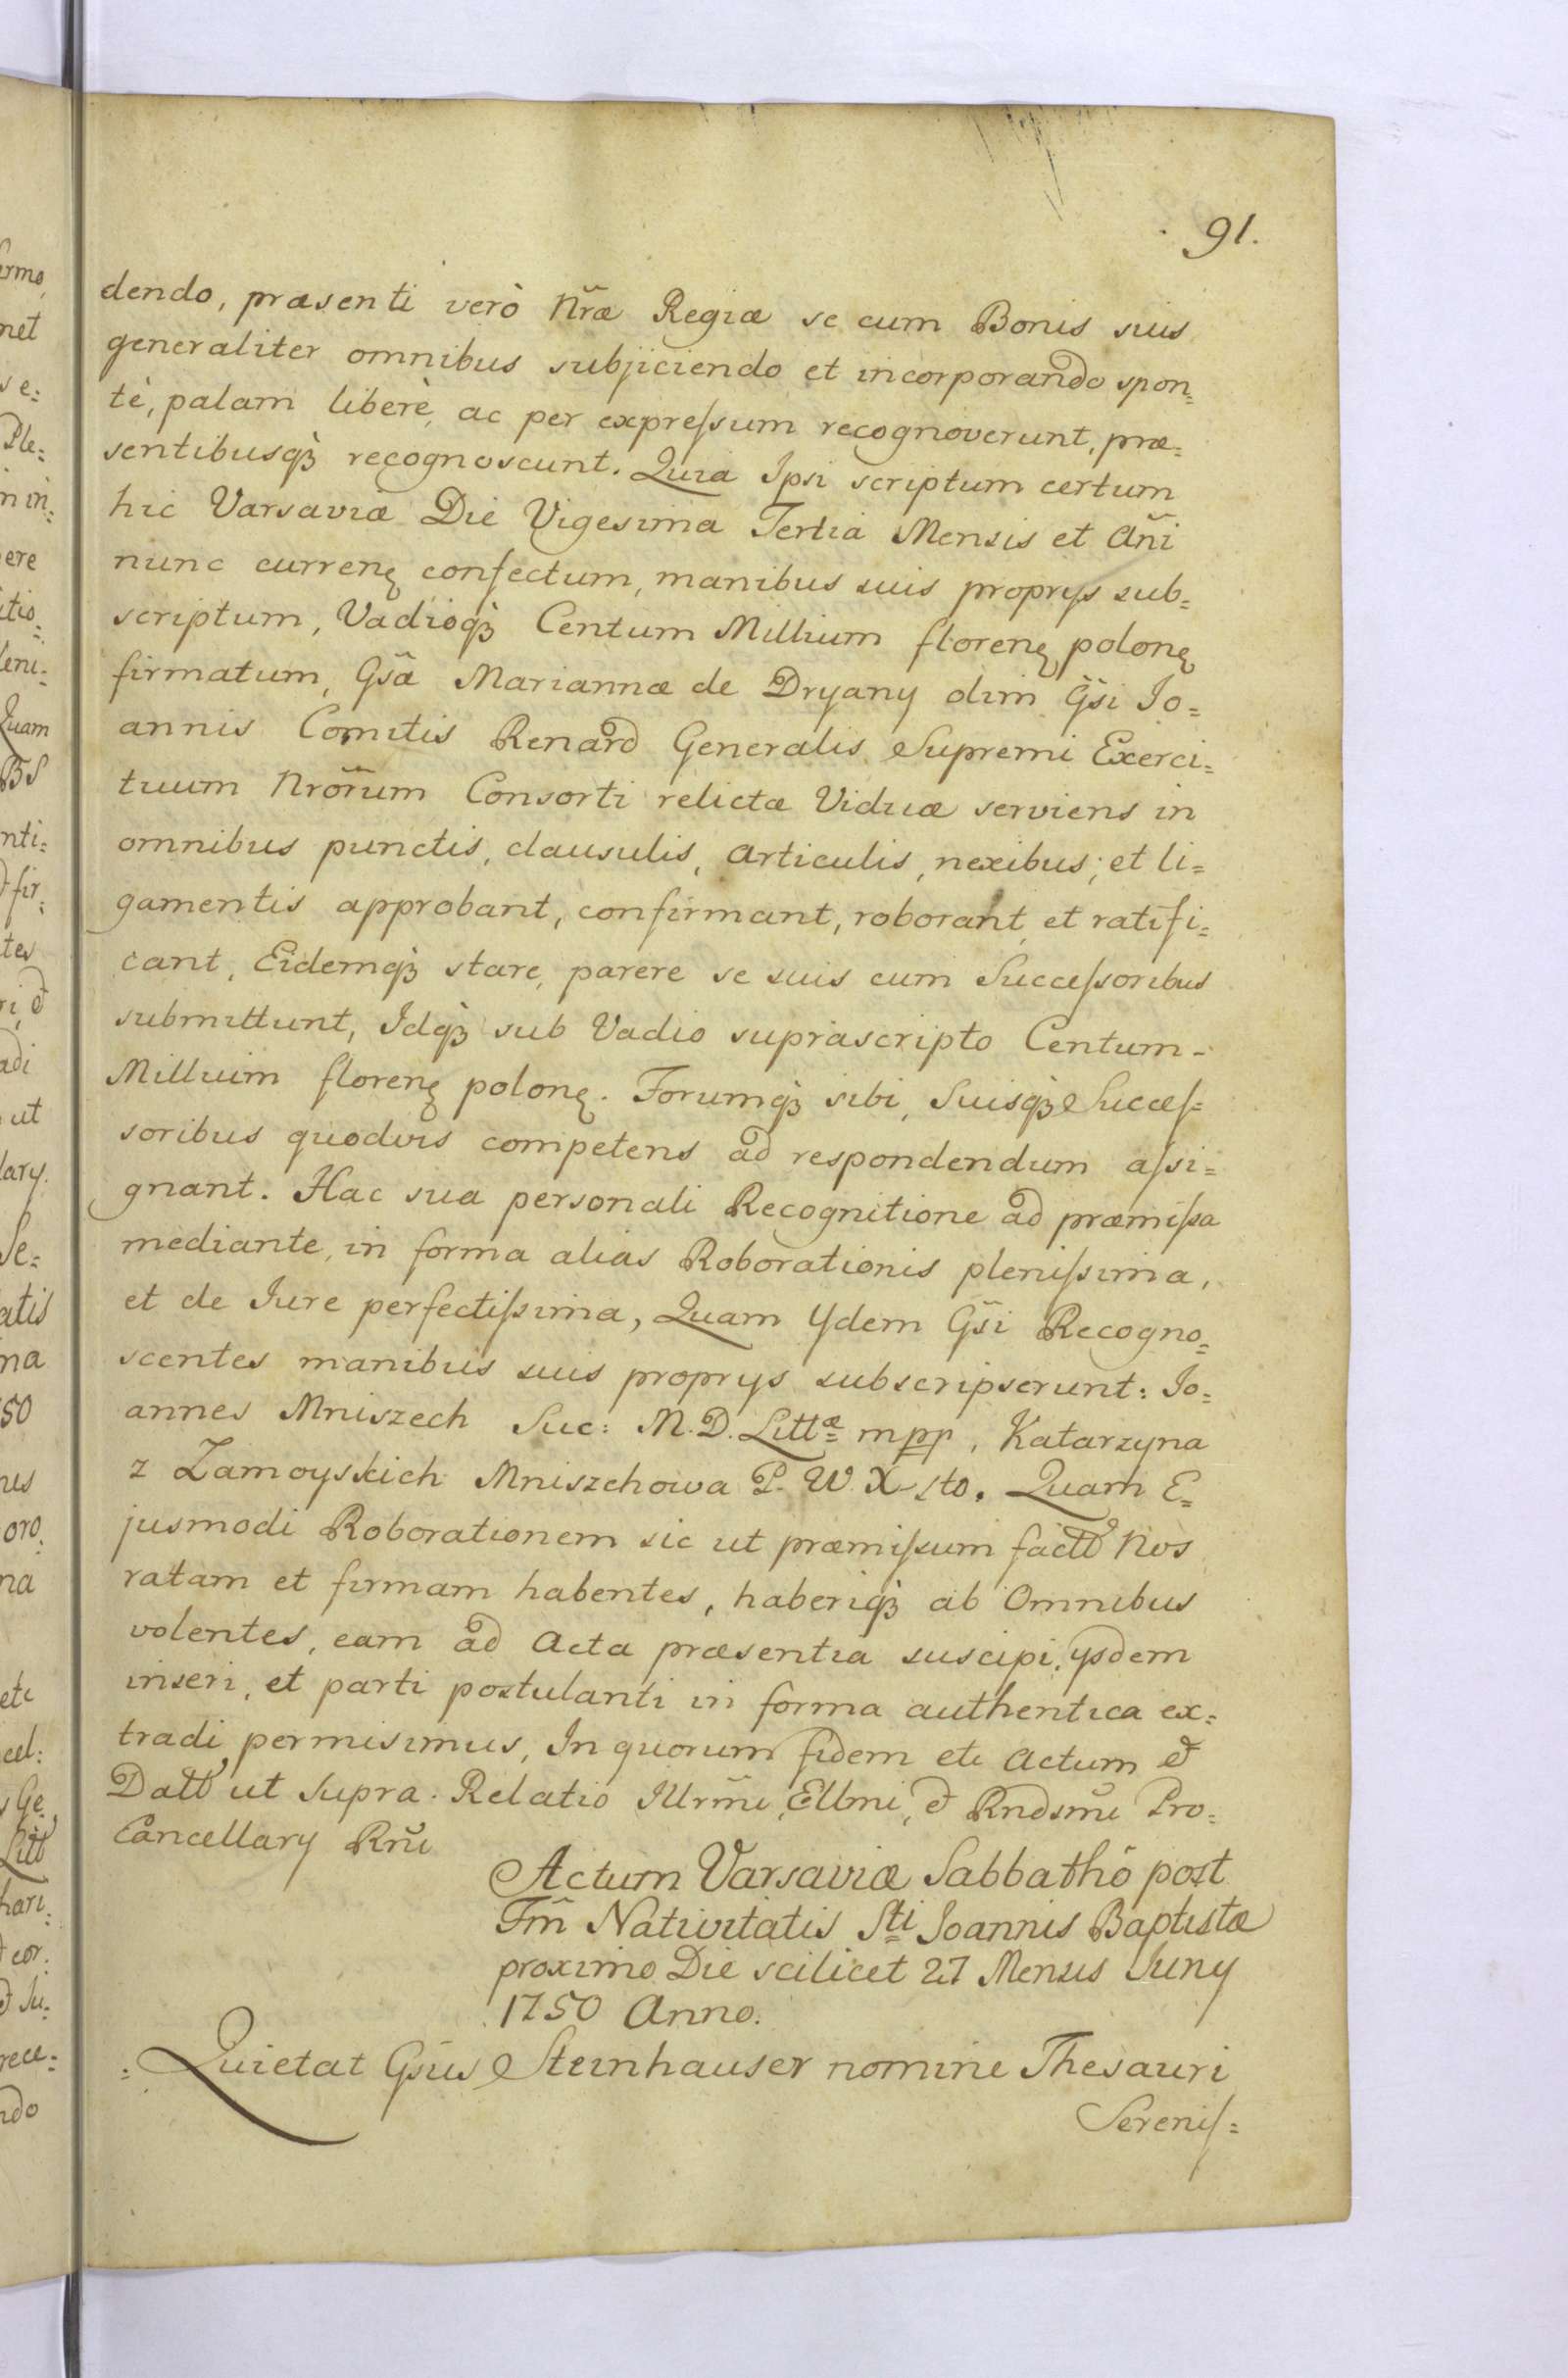 91.
dendo, præsenti verò Nr̃æ Regiæ se cum Bonis suis
generaliter omnibus subjiciendo et incorporando spon=
tè, palam liberè, ac per expreſsum recognoverunt, præ=
sentibusqꝫ recognoscunt. Quia Ipsi scriptum certum
hic Varsaviæ Die Vigesima Tertia Mensis et Añi
nunc currenꝭ confectum, manibus suis proprys sub=
scriptum, Vadioqꝫ Centum Millium florenꝭ polonꝭ
firmatum, Gsã Mariannæ de Dryany olim Gs̃i Jo=
annis Comitis Renard Generalis Supremi Exerci=
tuum Nrõrum Consorti relictæ Viduæ serviens in
omnibus punctis, clausulis, articulis, nexibus; et li=
gamentis approbant, confirmant, roborant et ratifi=
cant, Eidemqꝫ stare, parere se suis cum Succeſsoribus
submittunt, Idqꝫ sub Vadio suprascripto Centum-
Millium florenꝭ polonꝭ. Forumqꝫ sibi, Suisqꝫ Succeſ=
soribus quodvis competens ad respondendum aſsi=
gnant. Hac sua personali Recognitione ad præmiſsa
mediante, in forma alias Roborationis pleniſsima,
et de Jure perfectiſsima, Quam Ydem Gs̃i Recogno=
scentes manibus suis proprys subscripserunt: Jo=
annes Mniszech Suc: M. D. Littæ mpp, Katarzyna
z Zamoyskich Mniszchowa P. W. X Lto. Quam E=
jusmodi Roborationem sic ut præmiſsum factt Nos
ratam et firmam habentes, haberiqꝫ ab Omnibus
volentes, eam ad Acta præsentia suscipi, ysdem
inseri, et parti postulanti in forma authentica ex=
tradi permisimus, In quorum fidem etc Actum et
Datt ut Supra. Relatio Illrm̃i, Ellmi, et Rndsm̃i Pro=
Cancellary Rñi
Actum Varsaviæ Sabbathô post
Fm̃ Nativitatis Sti Joannis Baptistæ
proximo Die scilicet 27 Mensis Juny
1750 Anno.
Quietat Gs̃us Steinhauser nomine Thesauri
Sereniſ=